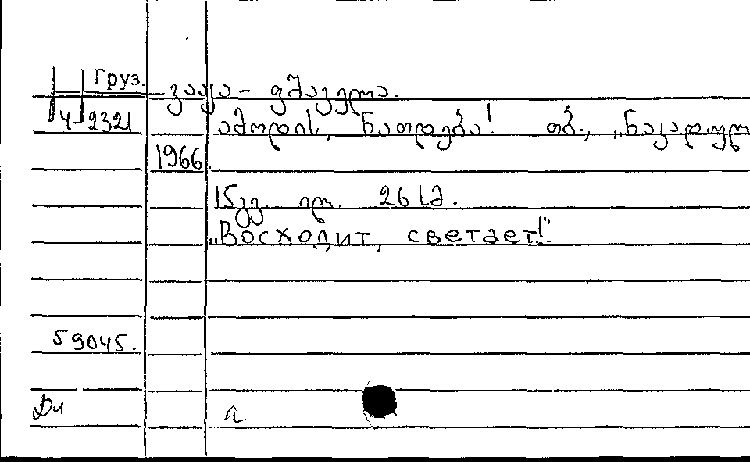 Груз.
ვაჟა - ფშაველა.
Ч 2321 ამოდის, ნათდება! თბ., „ნაკადული
1966
15 გვ. ილ. 26 სმ.
„Восходит, светает!"
59045.
Ди л